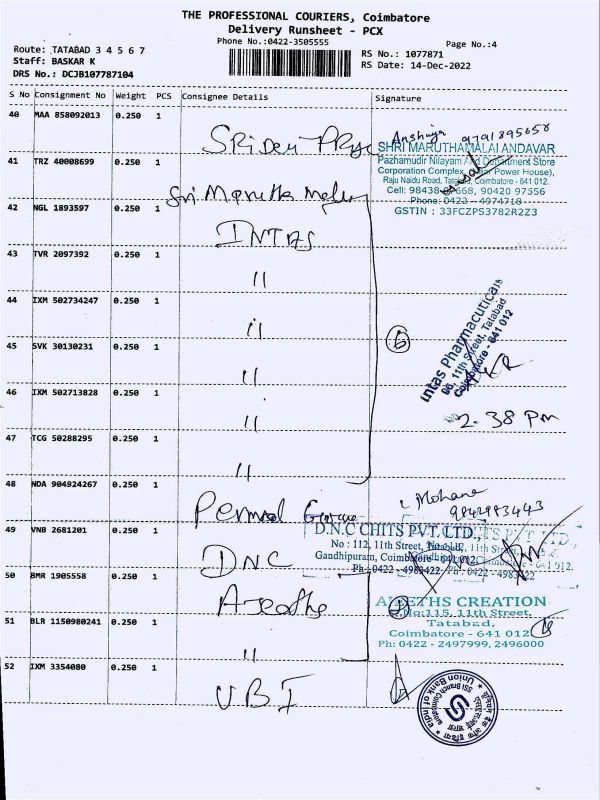 THE PROFESSIONAL COURIERS, Coimbatore
Delivery Runsheet - PCX
Phone No.:0422-3505555
Page No.:4
Route: TATABAD 3 4 5 6 7
Staff: BASKAR K
DRS No.: DCJB107787104
RS No.: 1077871
RS Date: 14-Dec-2022
S No Consignment No Weight PCS Consignee Details Signature
40 MAA 858092013 0.250 1
SHRI MARUTHAMALAI ANDAVAR
Pazhamudir Nilayam And Department Store
Corporation Complex, Power House),
Raju Naidu Road, Tatabad, Coimbatore - 641 012.
Cell: 98438 668, 90420 97556
Phone: 0422 - 4974718
GSTIN : 33FCZPS3782R2Z3
41 TRZ 40008699 0.250 1 Sri Marutha
42 NGL 1893597 0.250 1 INTAS
43 TVR 2097392 0.250 1 "
44 IXM 502734247 0.250 1 "
45 SVK 30130231 0.250 1 "
46 IXM 502713828 0.250 1 "
47 TCG 50288295 0.250 1 "
6
Intas Pharmaceuticals
96, 11th Street, Tatabad
Coimbatore - 641 012
2.38 Pm
48 NDA 904924267 0.250 1
Mohana
D.N.C CHITS PVT. LTD.,
No : 112, 11th Street,
Gandhipuram, Coimbatore - 641 012.
Ph : 0422 - 4983422
49 VNB 2681201 0.250 1 DNC
50 BMR 1905558 0.250 1
CREATION
No:115, 11th Street,
Tatabad,
Coimbatore - 641 012
Ph: 0422 - 2497999, 2496000
51 BLR 1150980241 0.250 1 "
52 IXM 3354080 0.250 1 UBI
Union Bank of India
SSI Branch Coimbatore